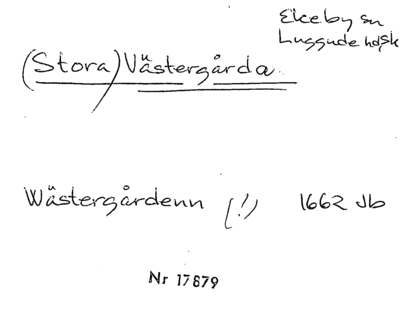 Ekeby sn
Luggude hdsk
(Stora) Västergårda
Wästergårdenn (!) 1662 Jb
Nr 17879